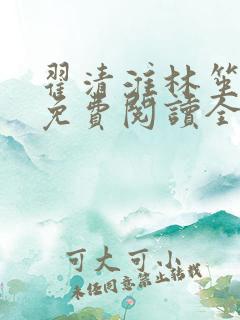 翟清淮林笙
免費閱讀全
可大可小
未经同意禁止转载